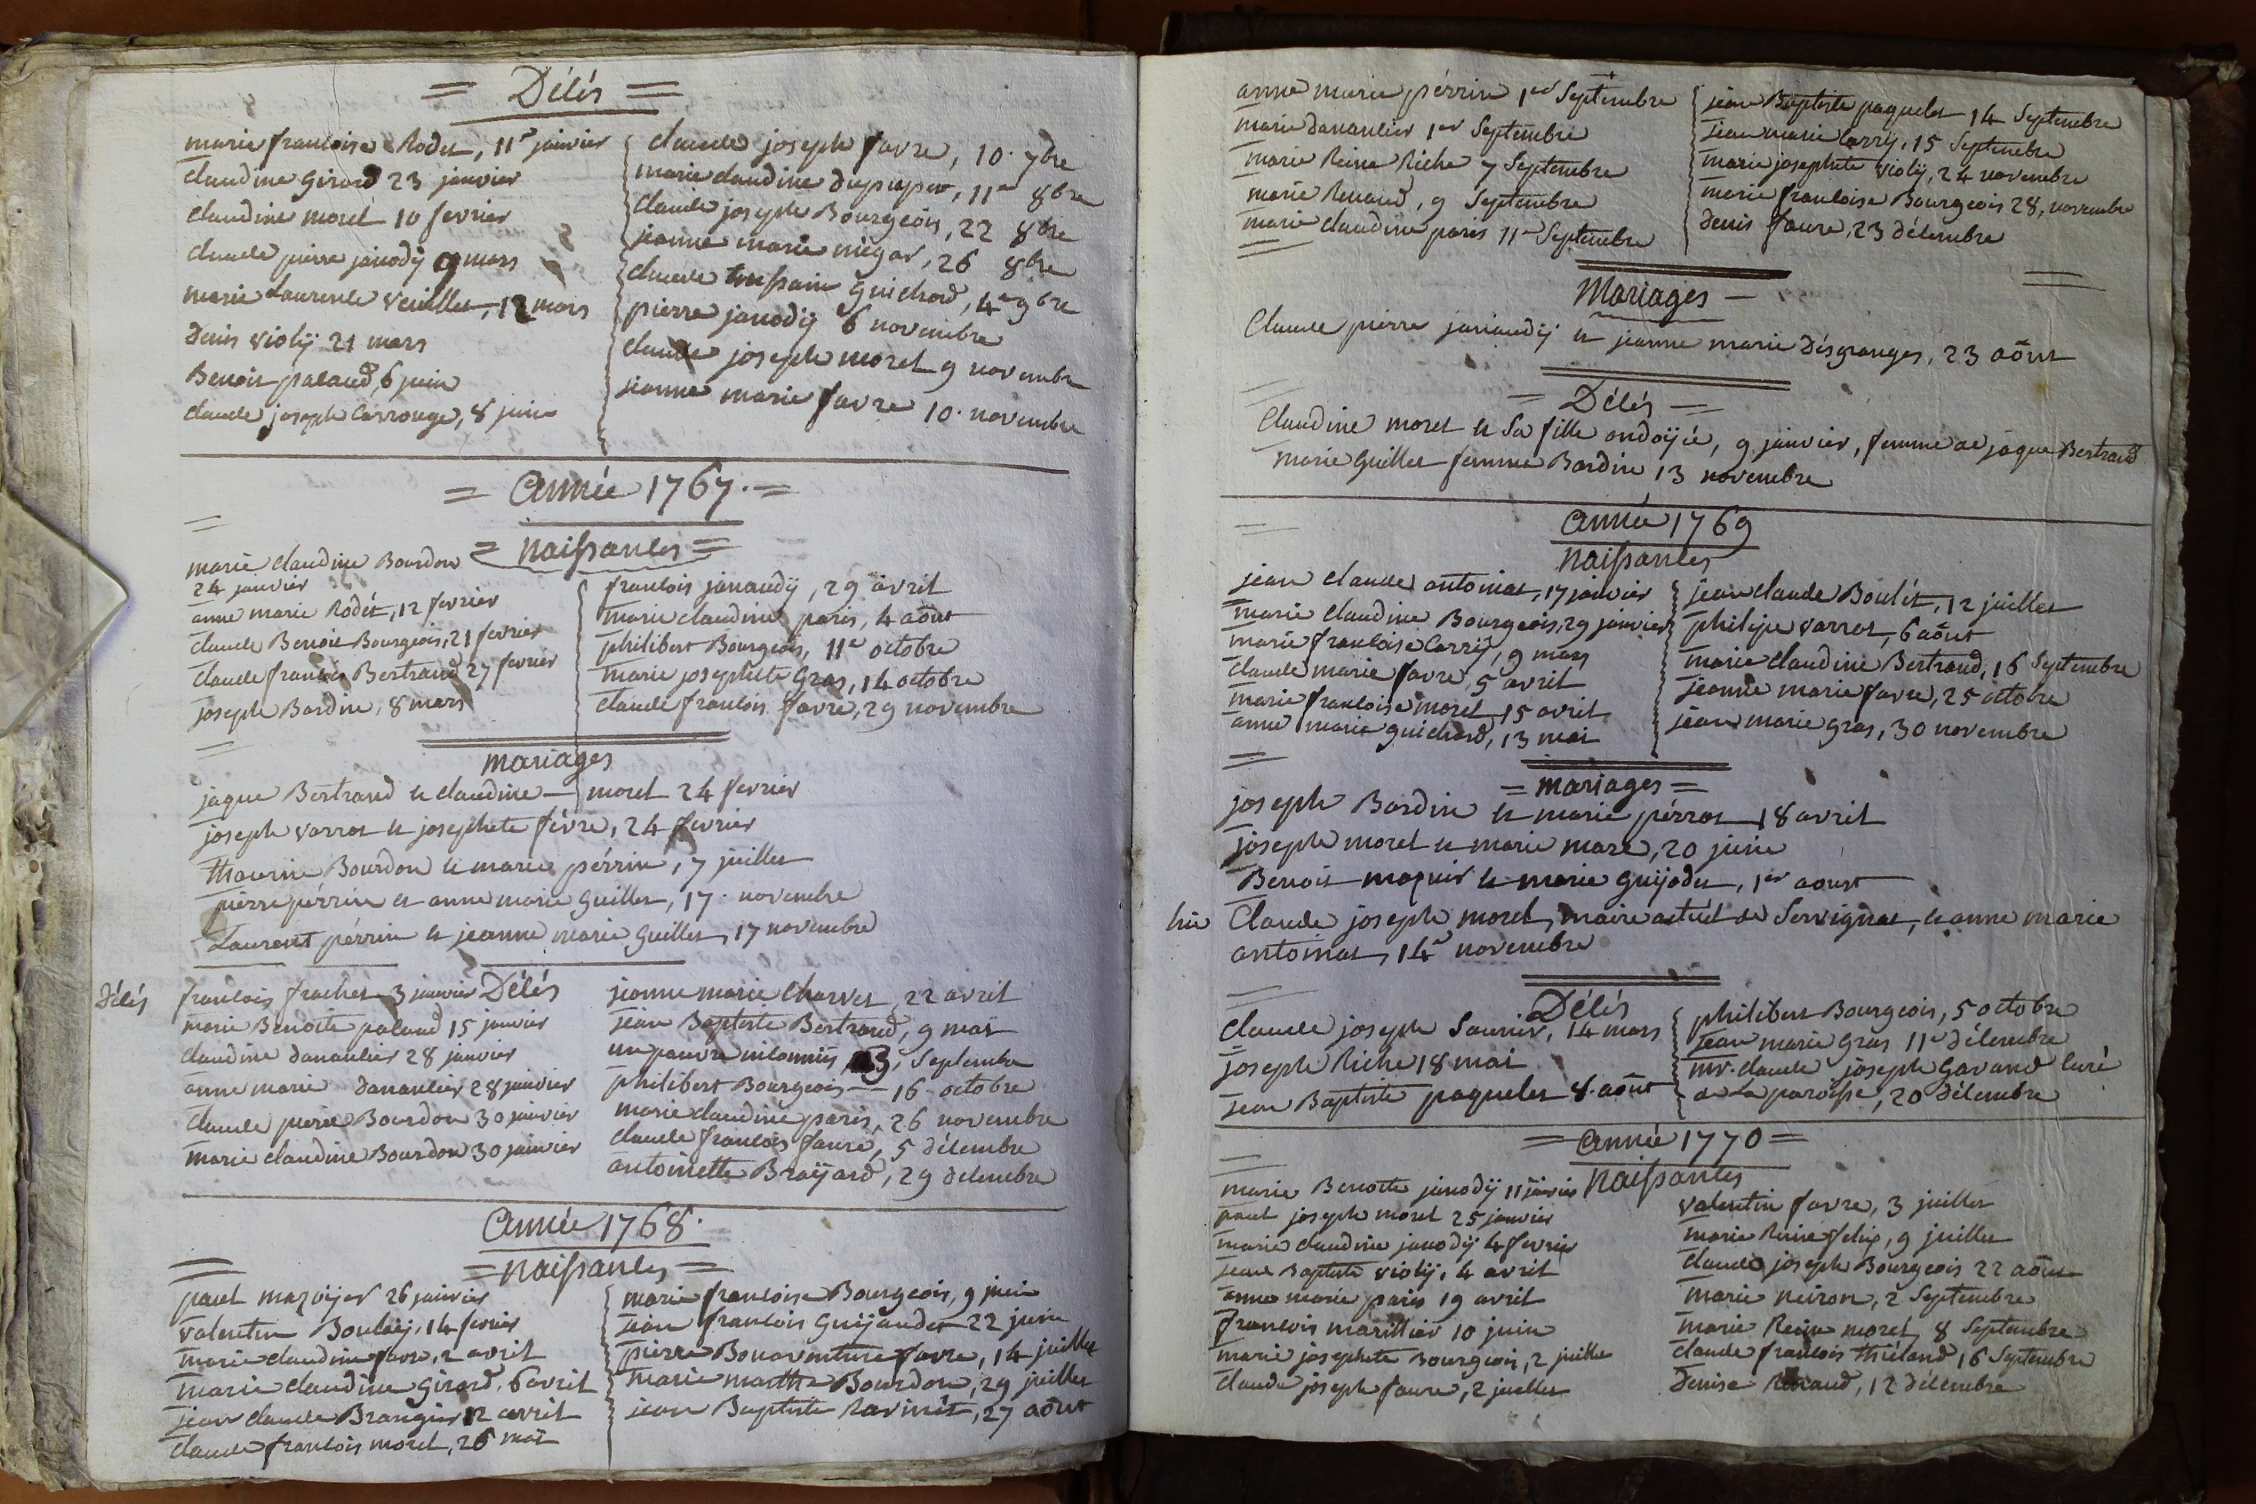 = Décés =
marie francoise Rodet, 11e janvier
claudine Girard 23 janvier
claudine morel 10 fevrier
claude pierre janody 9 mars
marie Laurence Veuillet, 12 mars
Denis violy 21 mars
Benoit palaud, 6 juin
claude joseph Carrouge, 8 juin
claude joseph favre, 10. 7bre
marie claudine dupupet, 11e 8bre
claude joseph Bourgeois, 22 8bre
jeanne marie nigar, 26 8bre
claude toussain Guichard, 4e 9bre
pierre janody 6 novembre
claude joseph morel 9 novembre
jeanne marie favre 10. novembre
= Année 1767. =
= naissances =
marie claudine Bourdon
24 janvier
anne marie Rodet, 12 fevrier
claude Benoit Bourgeois, 21 fevrier
claude francois Bertrand 27 fevrier
joseph Bardin, 8 mars
francois janaudy, 29 avril
marie claudine paris, 4 août
philibert Bourgeois, 11e octobre
marie josephete Gras, 14 octobre
claude francois favre, 29 novembre
mariages
jaque Bertrand et claudine morel 24 fevrier
joseph varrot et josephete févre, 24 fevrier
thaurin Bourdon et marie pérrin, 7 juillet
pierre pérrin et anne marie Guillet, 17. novembre
Laurent pérrin et jeanne marie Guillet, 17 novembre
Décés
Décés
francois frachet 3 janvier
marie Benoite palaud 15 janvier
claudine dananlier 28 janvier
anne marie dananlier 28 janvier
claude pierre Bourdon 30 janvier
marie claudine Bourdon 30 janvier
jeanne marie Charvet, 22 avril
jean Baptiste Bertrand, 9 mai
un pauvre inconnus, 3, Septembre
philibert Bourgeois — 16 octobre
marie claudine paris, 26 novembre
claude francois faure, 5 décembre
antoinette Brayard, 29 decembre
Année 1768.
= naissances =
paul mazoyer 26 janvier
valentin Boulay, 14 fevrier
marie claudine favre, 2 avril
marie claudine Girard, 6 avril
jean claude Brangier 12 avril
claude francois morel, 26 mai
marie francoise Bourgeois, 9 juin
jean francois Guijaudet 22 juin
pierre Bonaventure favre, 14 juillet
marie marthe Bourdon, 29 juillet
jean Baptiste Ravinet, 27 août
anne marie pérrin 1er Septembre
marie dananlier 1er Septembre
marie Reine Riche 7 Septembre
marie Renaud, 9 Septembre
marie claudine paris 11e Septembre
jean Baptiste paquelet 14 Septembre
jean marie Carry, 15 Septembre
marie josephete violy, 24 novembre
marie francoise Bourgeois 28, novembre
denis faure, 23 décembre
Mariages
Claude pierre janaudy et jeanne marie désgranges, 23 août
= Décés =
Claudine morel et Sa fille ondoyée, 9 janvier, femme de jaque Bertrand
marie Guillet femme Bardin 13 novembre
Année 1769
Naissances
jean claude antoinat, 17 janvier
marie claudine Bourgeois, 29 janvier
marie francoise Carry, 9 mars
claude marie favre, 5 avril
marie francoise morel 15 avril
anne marie guichard, 13 mai
jean claude Boulét, 12 juillet
philipe varrot, 6 août
marie claudine Bertrand, 16 Septembre
jeanne marie favre, 25 octobre
jean marie Gras, 30 novembre
= mariages =
joseph Bardin et marie pérrot 18 avril
joseph morel et marie mare, 20 juin
Benoit mazuir et marie Guijodet, 1er aoust
hic Claude joseph morel, maire actuel de Servignat, et anne marie
antoinat, 14e novembre
Décés
Claude joseph Saunier, 14 mars
joseph Riche 18 mai
jean Baptiste paquelet 8. août
philibert Bourgeois, 5 octobre
jean marie Gras 11e décembre
mr. claude joseph Gavand Curé
de La paroisse, 20 décembre
= Année 1770 =
Naissances
marie Benoite janody 11 janvier
paul joseph morel 25 janvier
marie claudine janody 4 fevrier
jean Baptiste violy, 4 avril
anne marie paris 19 avril
francois marillier 10 juin
marie josephete Bourgeois, 2 juillet
claude joseph faure, 2 juillet
valentin favre, 3 juillet
marie Reine felix, 9 juillet
claude joseph Bourgeois 22 août
marie neiron, 2 Septembre
marie Reine morel, 8 Septembre
claude francois thieland 16 Septembre
Denise Renaud, 12 décembre